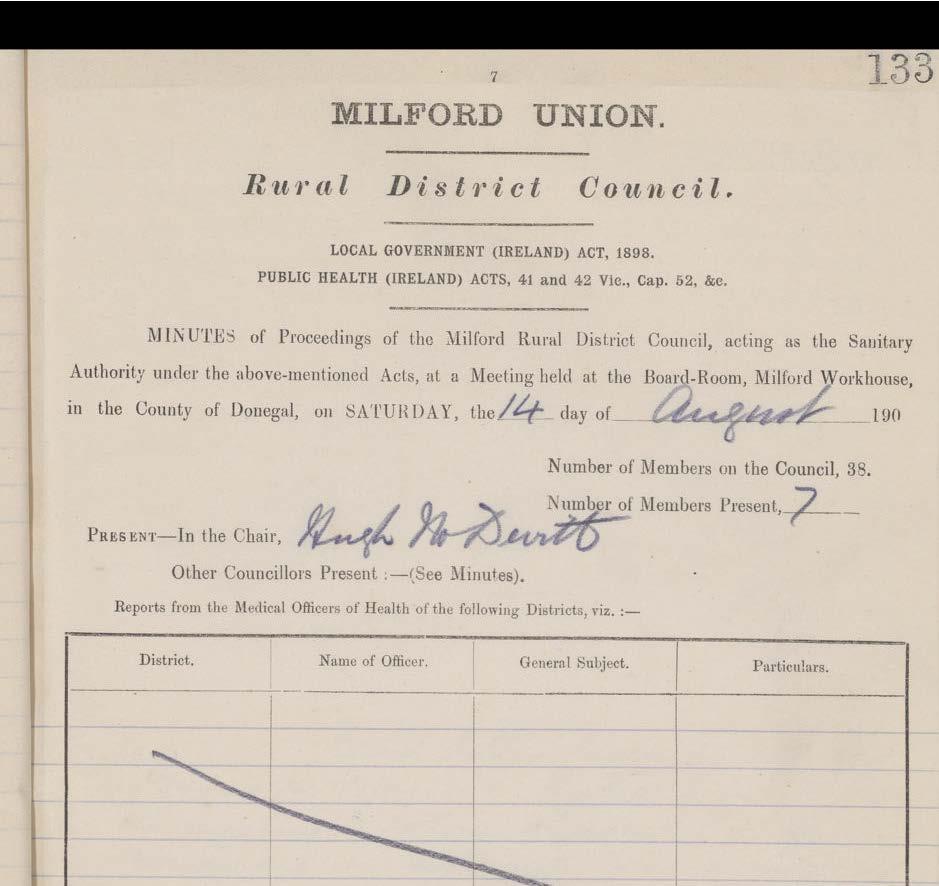 133
7
MILFORD UNION.
Rural District Council.
LOCAL GOVERNMENT (IRELAND) ACT, 1898.
PUBLIC HEALTH (IRELAND) ACTS, 41 and 42 Vic., Cap. 52, &c.
MINUTES of Proceedings of the Milford Rural District Council, acting as the Sanitary
Authority under the above-mentioned Acts, at a Meeting held at the Board-Room, Milford Workhouse,
in the County of Donegal, on SATURDAY, the 14 day of August 190
Number of Members on the Council, 38.
Number of Members Present, 7
PRESENT—In the Chair, Hugh McDevitt
Other Councillors Present :—(See Minutes).
Reports from the Medical Officers of Health of the following Districts, viz. :—
District. Name of Officer. General Subject. Particulars.